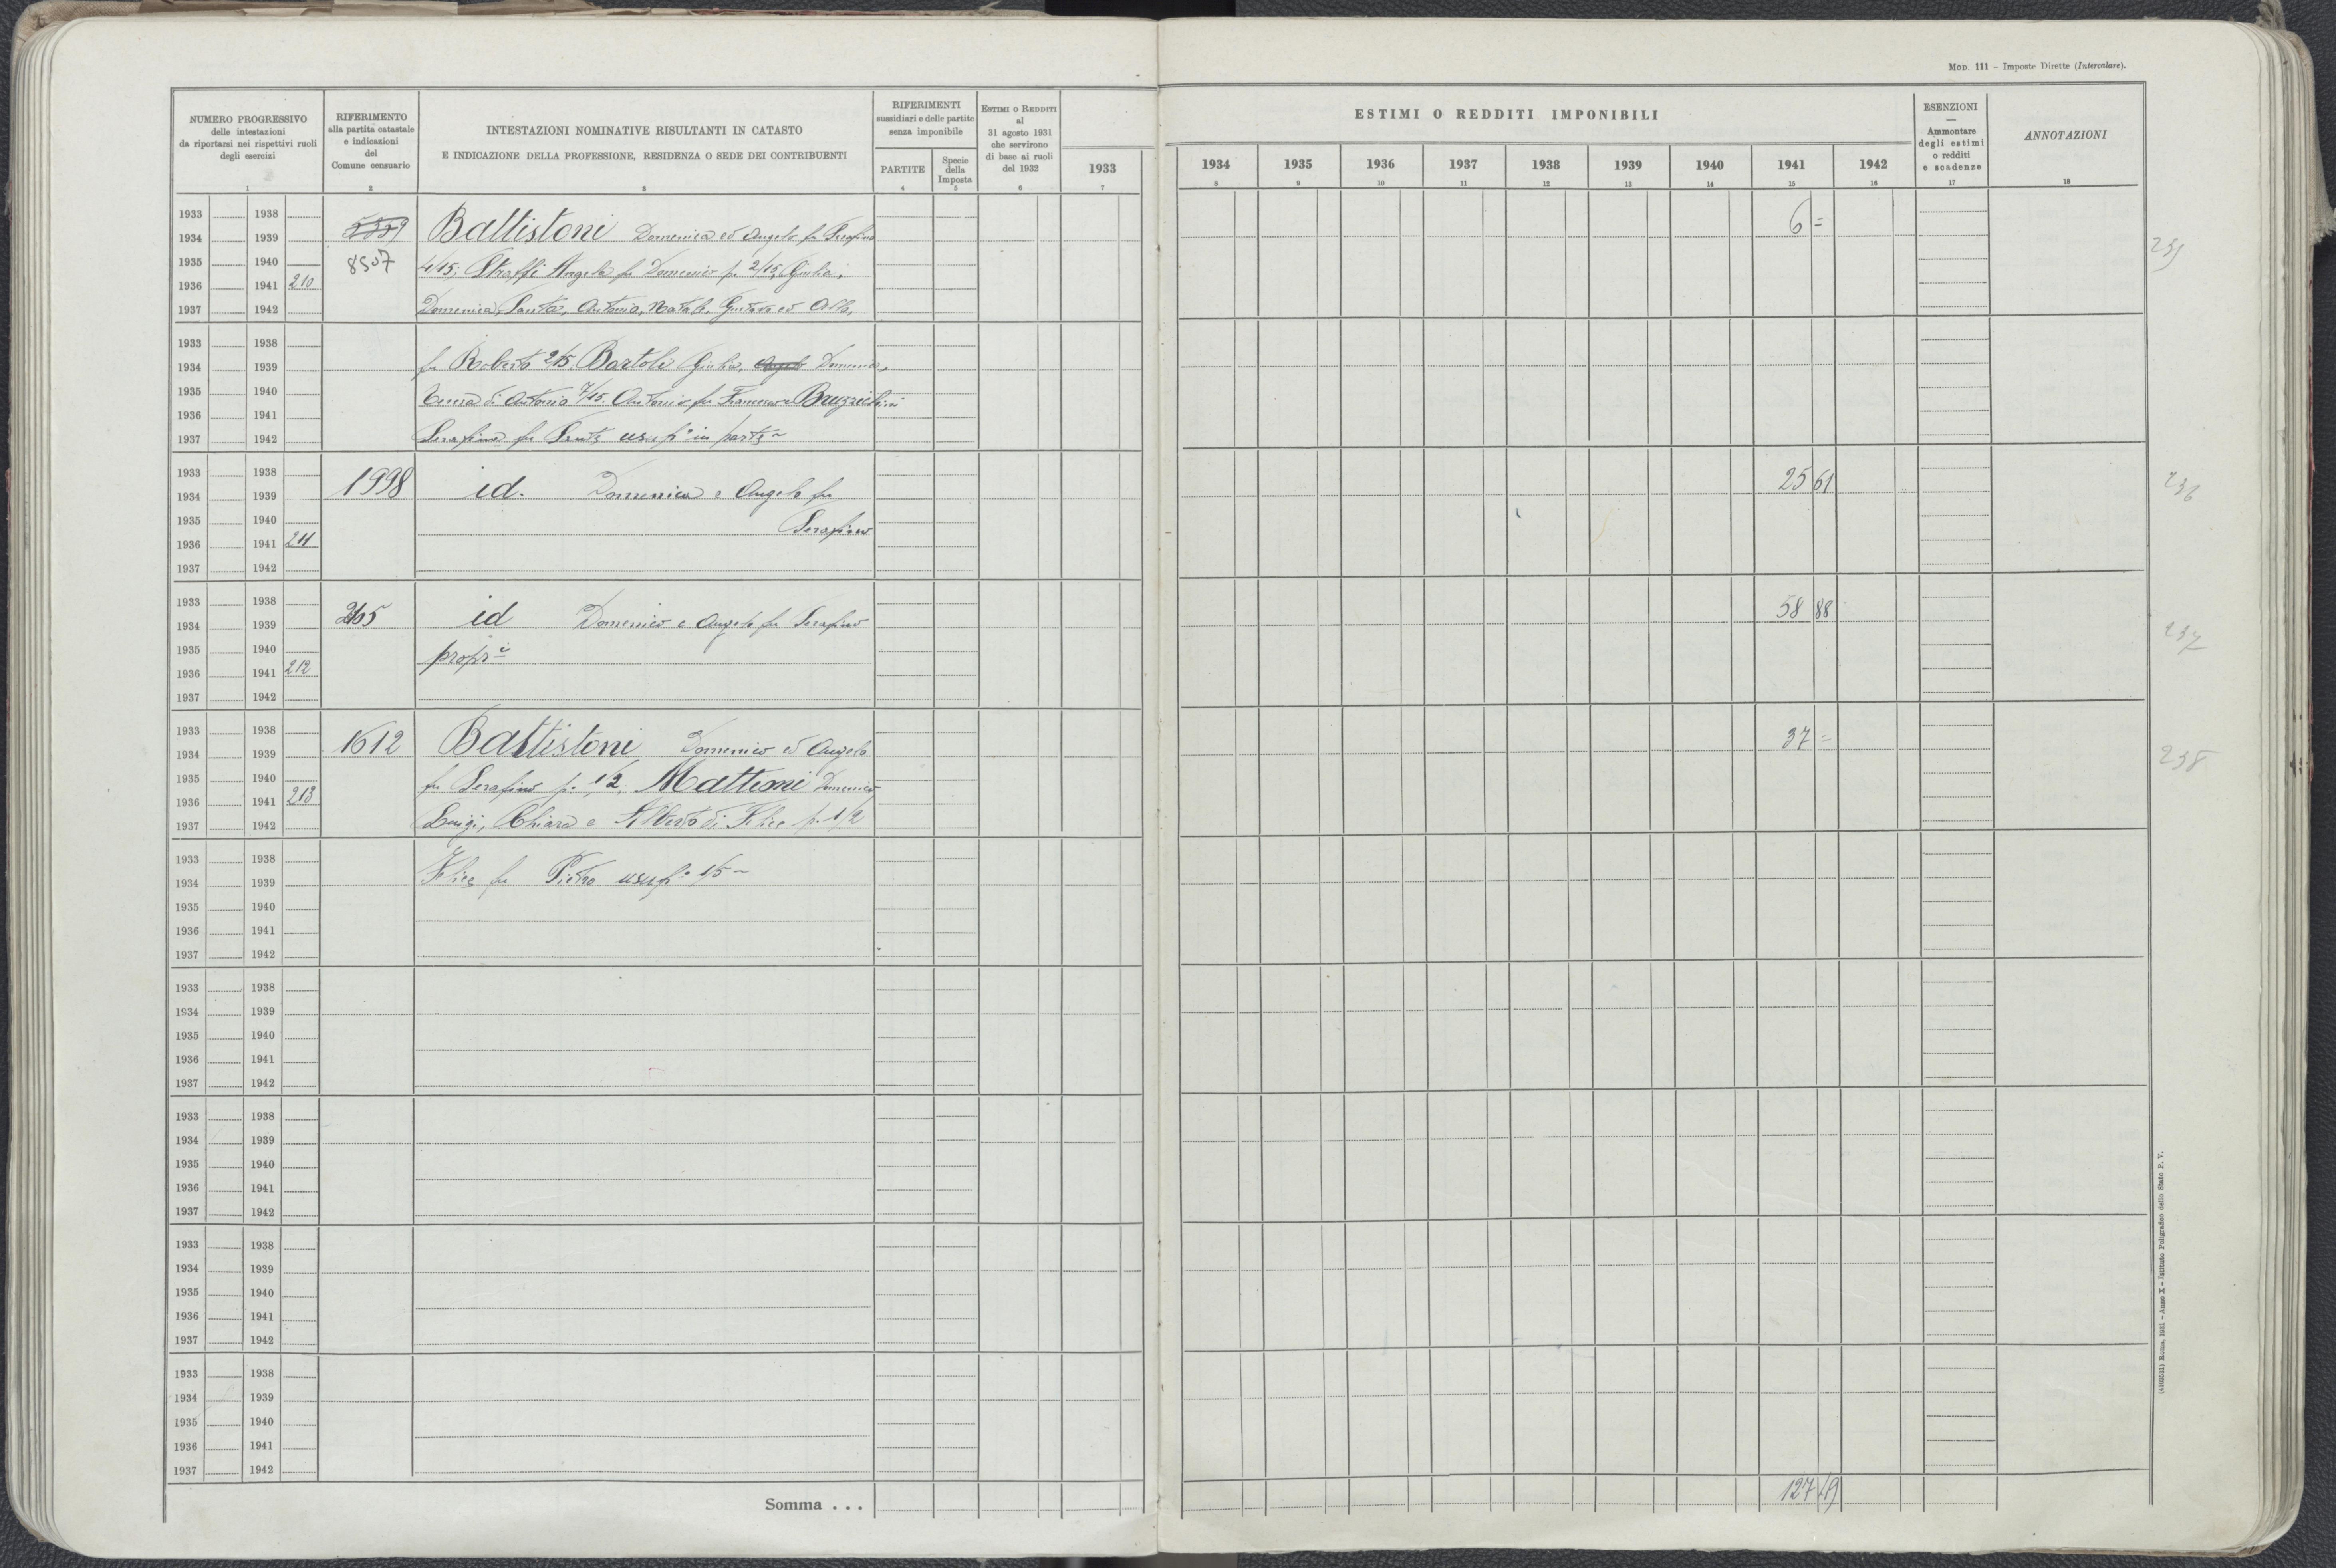 MOD. 111 – Imposte Dirette (Intercalare).
NUMERO PROGRESSIVO
delle intestazioni
da riportarsi nei rispettivi ruoli
degli esercizi
1
RIFERIMENTO
alla partita catastale
e indicazioni
del
Comune censuario
2
INTESTAZIONI NOMINATIVE RISULTANTI IN CATASTO
E INDICAZIONE DELLA PROFESSIONE, RESIDENZA O SEDE DEI CONTRIBUENTI
3
RIFERIMENTI
sussidiari e delle partite
senza imponibile
PARTITE
4
Specie
della
Imposta
5
ESTIMI O REDDITI
al
31 agosto 1931
che servirono
di base ai ruoli
del 1932
6
1933
7
ESTIMI O REDDITI IMPONIBILI
1934 1935 1936 1937 1938 1939 1940 1941 1942
8 9 10 11 12 13 14 15 16
ESENZIONI
—
Ammontare
degli estimi
o redditi
e scadenze
17
ANNOTAZIONI
18
1933 1938 Battistoni Domenica ed Angelo fu Serafino 6 =
1934 1939
1935 1940 8507 4/15; Straffi Angelo fu Domenico p. 2/15, Giulia,
1936 1941 210
1937 1942 Domenica, Santa, Antonio, Natale, Gustavo ed Alba,
1933 1938
1934 1939 fu Roberto 2/15 Bartoli Giulia, Domenica,
1935 1940
1936 1941 di Antonio 7/15. Antonio fu Francesco
1937 1942 Serafina fu in parte
1933 1938
1934 1939 1998 id. Domenica e Angelo fu 25 61 236
1935 1940 Serafino
1936 1941 211
1937 1942
1933 1938 2165 id Domenico e Angelo fu Serafino 58 88
1934 1939 237
1935 1940 propri
1936 1941 212
1937 1942
1933 1938
1934 1939 1612 Battistoni Domenico ed Angelo 37 = 238
1935 1940 fu Serafino p. 1/2, Mattioni Domenico
1936 1941 213
1937 1942 Luigi, Chiara e Alberto di Felice p. 1/2
1933 1938
1934 1939 Felice fu Pietro usuf. 1/5
1935 1940
1936 1941
1937 1942
1933 1938
1934 1939
1935 1940
1936 1941
1937 1942
1933 1938
1934 1939
1935 1940
1936 1941
1937 1942
1933 1938
1934 1939
1935 1940
1936 1941
1937 1942
1933 1938
1934 1939
1935 1940
1936 1941
1937 1942
Somma . . . 127 49
(4103531) Roma, 1931 – Anno X – Istituto Poligrafico dello Stato P. V.